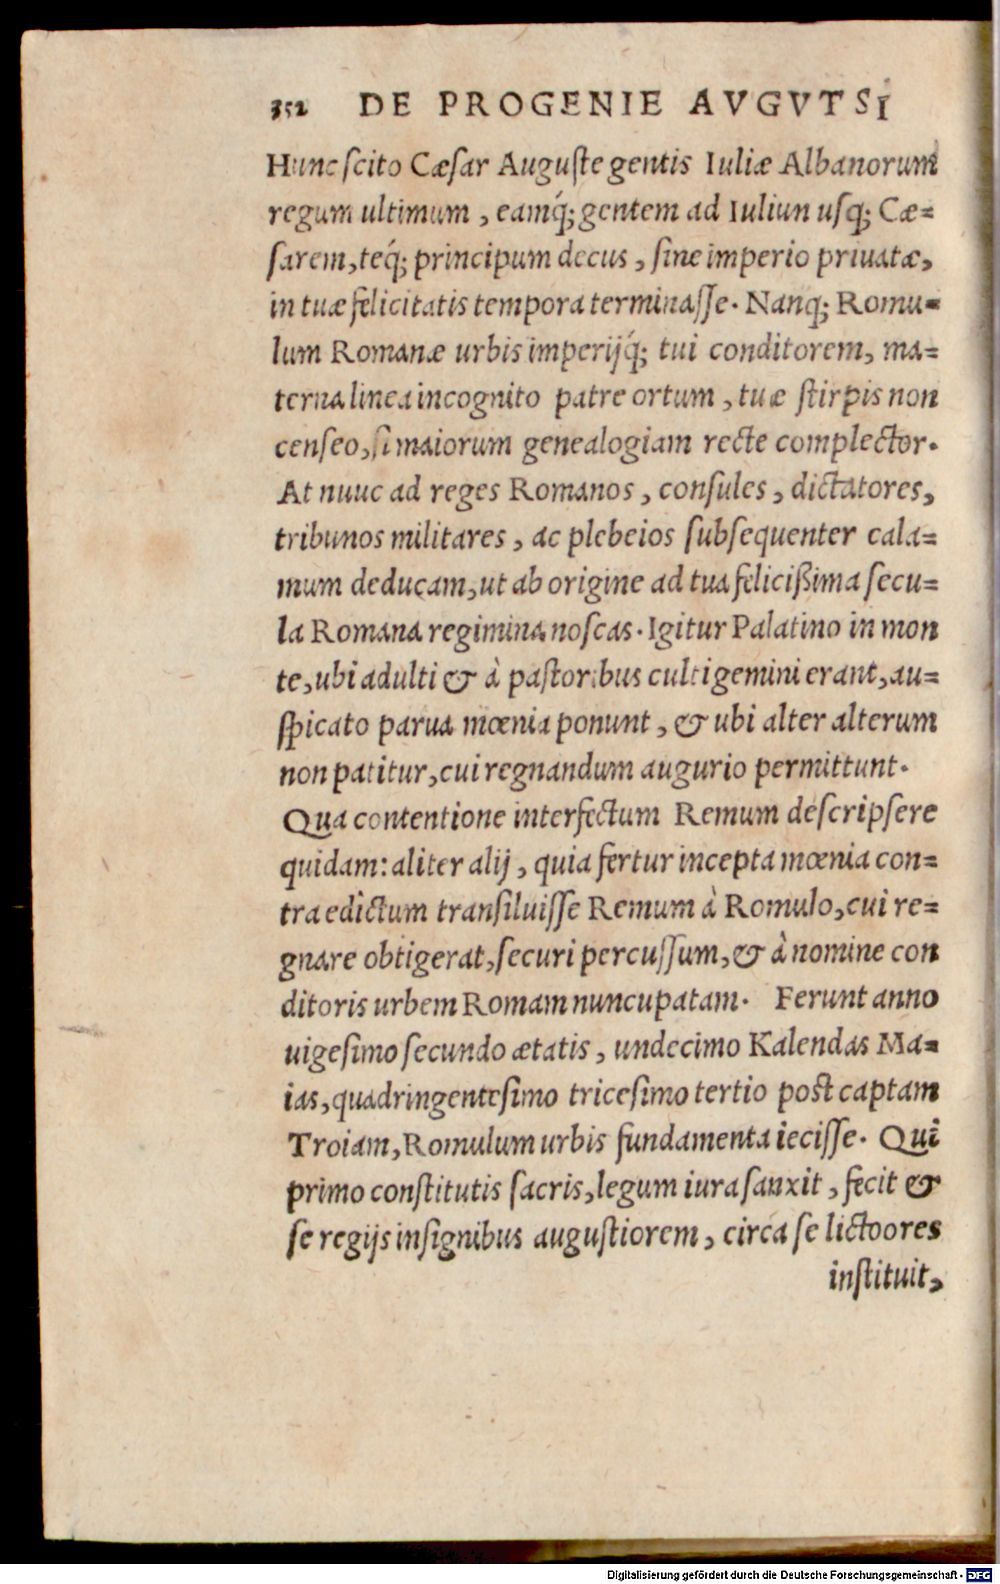 352 DE PROGENIE AVGVTSI
Hunc scito Cæsar Auguste gentis Iuliæ Albanorum
regum ultimum, eamq́; gentem ad Iuliun usq; Cæ=
sarem, teq́; principum decus, sine imperio priuatæ,
in tuæ felicitatis tempora terminasse. Nanq; Romu=
lum Romanæ urbis imperijq́; tui conditorem, ma=
terna linea incognito patre ortum, tuæ stirpis non
censeo, si maiorum genealogiam recte complector.
At nuuc ad reges Romanos, consules, dictatores,
tribunos militares, ac plebeios subsequenter cala=
mum deducam, ut ab origine ad tua felicißima secu=
la Romana regimina noscas. Igitur Palatino in mon
te, ubi adulti & à pastoribus culti gemini erant, au=
spicato parua mœnia ponunt, & ubi alter alterum
non patitur, cui regnandum augurio permittunt.
Qua contentione interfectum Remum descripsere
quidam: aliter alij, quia fertur incepta mœnia con=
tra edictum transiluisse Remum à Romulo, cui re=
gnare obtigerat, securi percussum, & à nomine con
ditoris urbem Romam nuncupatam. Ferunt anno
uigesimo secundo ætatis, undecimo Kalendas Ma=
ias, quadringentesimo tricesimo tertio post captam
Troiam, Romulum urbis fundamenta iecisse. Qui
primo constitutis sacris, legum iura sanxit, fecit &
se regijs insignibus augustiorem, circa se lictoores
instituit,
Digitalisierung gefördert durch die Deutsche Forschungsgemeinschaft - DFG